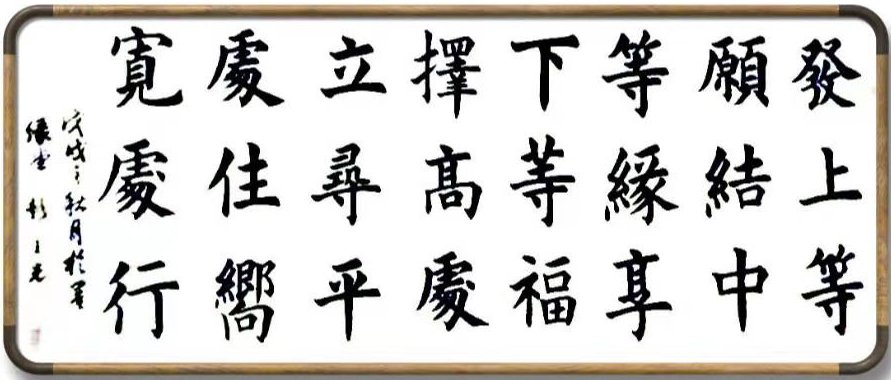 發上等
願結中
等緣享
下等福
擇高處
立尋平
處住嚮
寬處行
戊戌之秋月於墨
緣堂